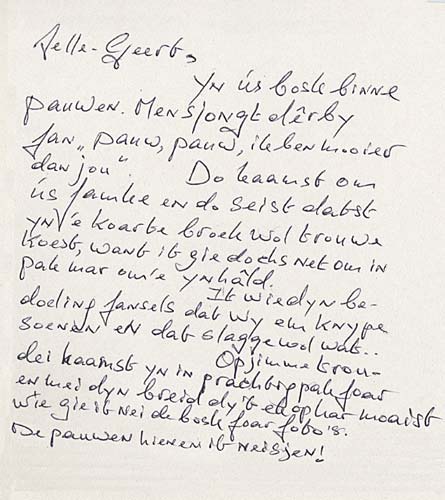 Jelle-Geert,
yn ús bosk binne
pauwen. Men sjongt dêrby
fan „pauw, pauw, ik ben mooier
dan jou". Do kaamst om
ús famke en do seist datst
yn 'e koarte broek wol trouwe
koest, want it gie dochs net om in
pak mar om 'e ynhâld.
It wie dyn be-
doeling fansels dat wy em knype
soenen en dat slagge wol wat..
Op jimme trou-
dei kaamst yn in prachtig pak foar
en mei dyn breid dy't ek op har moaist
wie gie it nei de bosk foar foto's.
De pauwen hienen it neisjen!